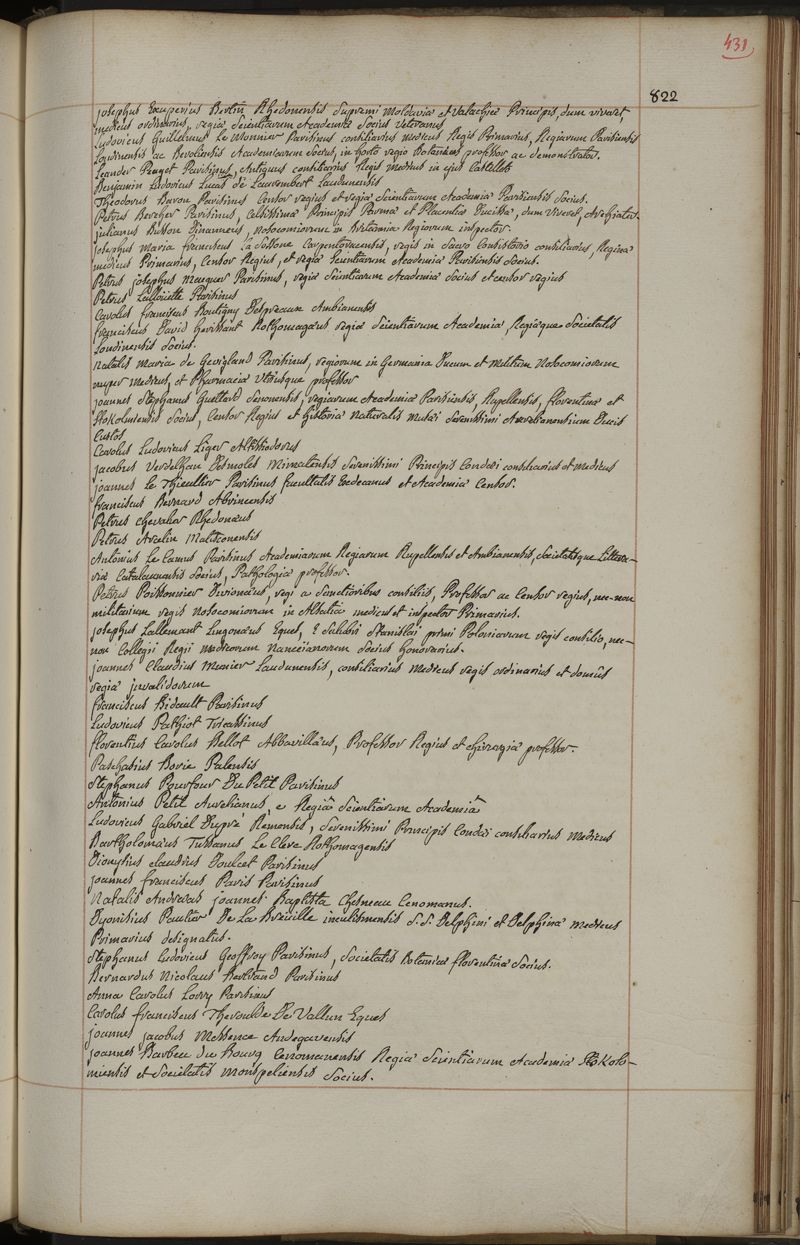 431
822
Josephus Exuperius Bertin Rhedonensis Supremi Moldaviæ et Valachiæ Principis, dum viveret
medicus ordinarius, regiæ Scientiarum Academiæ Socius Veteranus
Ludovicus Guillelmus Le Monnier Parisinus consiliarius medicus Regis Primarius, Regiarum Parisiensis
Londinensis ac Berolensis Academiarum Socius, in horto regio Botanices professor ac demonstrator.
Leander Peaget Parisinus, Antiquus consiliarius Regis medicus in ejus Castelleto
Benjamin Ludovicus Lucas de Laurembert Laudunensis
Theodorus Baron Parisinus Censor regius et regiæ Scientiarum Academiæ Parisiensis Socius.
Petrus Bercher Parisinus, Celsissimæ Principis Parmæ et Placentiæ Ducissæ, dum viveret, Archiater.
Julianus Busson Dinannæus, nosocomiorum in Britannia Regiorum inspector.
Josephus Maria franciscus La Sossone Carpentoractensis, regis in Sacro Consistorio consiliarius, Reginæ
medicus Primarius, Censor Regius, et regiæ Scientiarum Academiæ Parisiensis Socius.
Petrus Josephus Macquer Parisinus, regiæ Scientiarum Academiæ Socius et censor regius
Petrus Lalloüette Parisinus
Carolus franciscus Boutigny Despreaux Ambianensis
franciscus David herissant Rothomagæus regiæ Scientiarum Academiæ, Regiæque Societatis
Londinensis Socius.
Natalis Maria de Gevigland Parisinus, regiorum in Germania Ducum et Militum Nosocomiorum
nuper medicus, et Pharmaciæ Utriusque professor
Joannes Stephanus Guettard Senonensis, regiarum Academiæ Parisiensis, Rupellensis, florentinæ et
Stokolmiensis Socius, Censor Regius et historiæ naturalis Musæi Serenissimi Aurelianensium Ducis
Custos
Carolus Ludovicus Liger Altissiodorus
Jacobus Verdelhan Desmoles Mimatensis Serenissimi Principis Condæi consiliarius et medicus
Joannes Le Thieullier Parisinus facultatis Exdecanus et Academiæ Censor.
franciscus Bernard Abrincensis
Petrus Chevalier Rhedonæus
Petrus Avalin Matisconensis
Antonius Le Camus Parisinus Academiarum Regiarum Rupellensis et Ambianensis, Societatisque Littera-
riæ Catalaunensis Socius, Pathologiæ professor.
Petrus Poissonnier Divionæus, regi a Sanctioribus consiliis, Professor ac Censor regius, nec-non
militarium regis Nosocomiorum in Alsatia medicus et inspector Primarius.
Josephus Lallemant Lingonæus Eques, è Salubri Stanislai primi Poloniarum regis consilio, nec-
non Collegii Regii medicorum Nanceianorum Socius honorarius.
Joannes Claudius Munier Laudunensis, consiliarius medicus regis ordinarius et domûs
regiæ invalidorum
franciscus Bidault Parisinus
Ludovicus Pathiot Trecassinus
florentius Carolus Bellot Abbavillæus, Professor Regius et chirurgiæ professor.
Paschasius Borie Palensis
Stephanus Pourfour Du Petit Parisinus
Antonius Petit Aurelianus, e Regiâ Scientiarum Academiâ
Ludovicus Gabriel Dupré Remensis, Serenissimi Principis Condæi consiliarius medicus
Bartholomæus Tussanus Le Clerc Rothomagensis
Dionysius Claudius Doulcet Parisinus
Joannes franciscus Paris Parisinus
Natalis Andreas Joannes Baptista Chesneau Cenomanus.
Dyonisius Paulus De La Breuille inculismensis S. S. Delphini et Delphinæ medicus
Primarius designatus.
Stephanus Ludovicus Geoffroy Parisinus, Societatis Botanicæ florentinæ Socius.
Bernardus Nicolaus Bertrand Parisinus
Anna Carolus Lorry Parisinus
Carolus franciscus Theroulde De Vallun Eques
Joannes Jacobus Messence Andegavensis
Joannes Barbeu du Bourg Cenomanensis Regiæ Scientiarum Academiæ Stokolo-
miensis et Societatis Monspeliensis Socius.